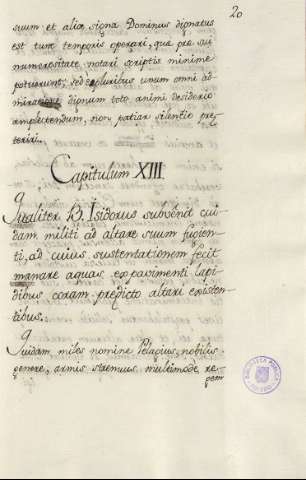 20
suum et alia signa Dominus dignatus
est tunc temporis operari, quæ præ sui
numerositate notari scriptis minime
potuerunt; sed ex pluribus unum omni ad-
miratione dignum toto animi desiderio
amplectendum, non patiar silentio præ-
teriri.
Capitulum XIII.
Qualiter B. Isidorus subvenit cui-
dam militi ad altare suum fugien-
ti, ad cuius sustentationem fecit
manare aquas ex pavimenti lapi-
dibus coram predicto altari existen-
tibus.
Quidam, miles nomine Pelagius, nobilis
genere, armis strenuus multimode re-
pem